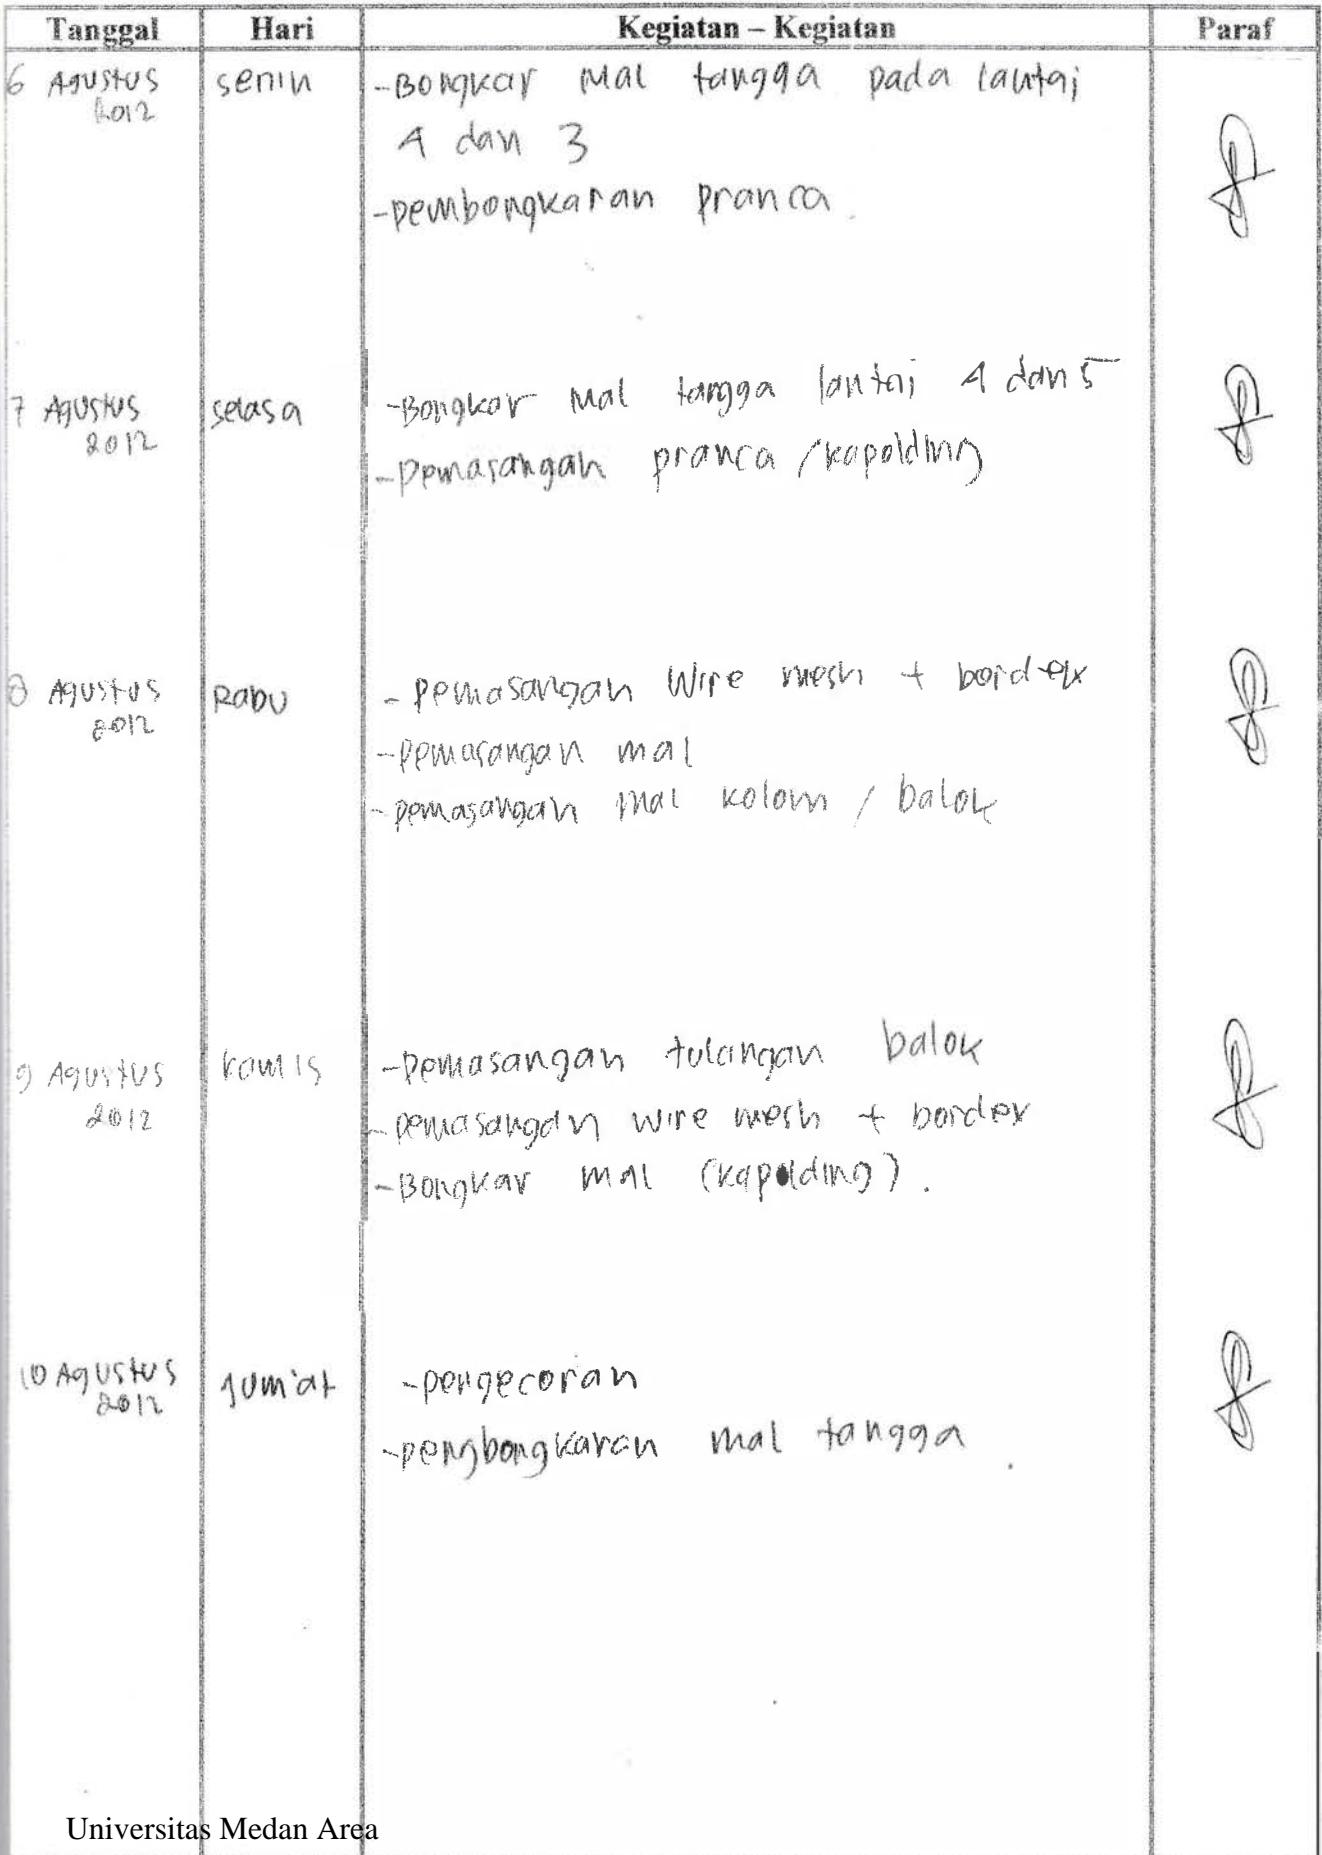 Tanggal Hari Kegiatan – Kegiatan Paraf
6 Agustus senin -Bongkar mal tangga pada lantai
2012
4 dan 3
-pembongkaran pranca.
7 Agustus selasa -Bongkar mal tangga lantai 4 dan 5
2012
-pemasangan pranca /kapolding
8 Agustus Rabu - pemasangan Wire mesh + bordex
2012
-pemasangan mal
-pemasangan mal kolom / balok
9 Agustus kamis -pemasangan tulangan balok
2012 -pemasangan wire mesh + bordex
-Bongkar mal (kapolding).
10 Agustus Jum'at -pengecoran
2012
-pengbongkaran mal tangga.
Universitas Medan Area